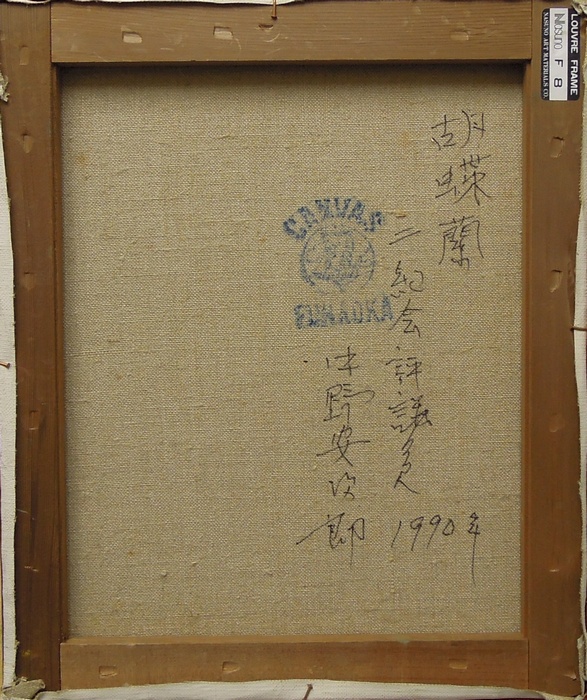 胡蝶蘭
二紀会評議員
1990年
中野安次郎
CANVAS
FUNAOKA
LOUVRE FRAME
nasuno F 8
NASUNO ART MATERIALS CO.